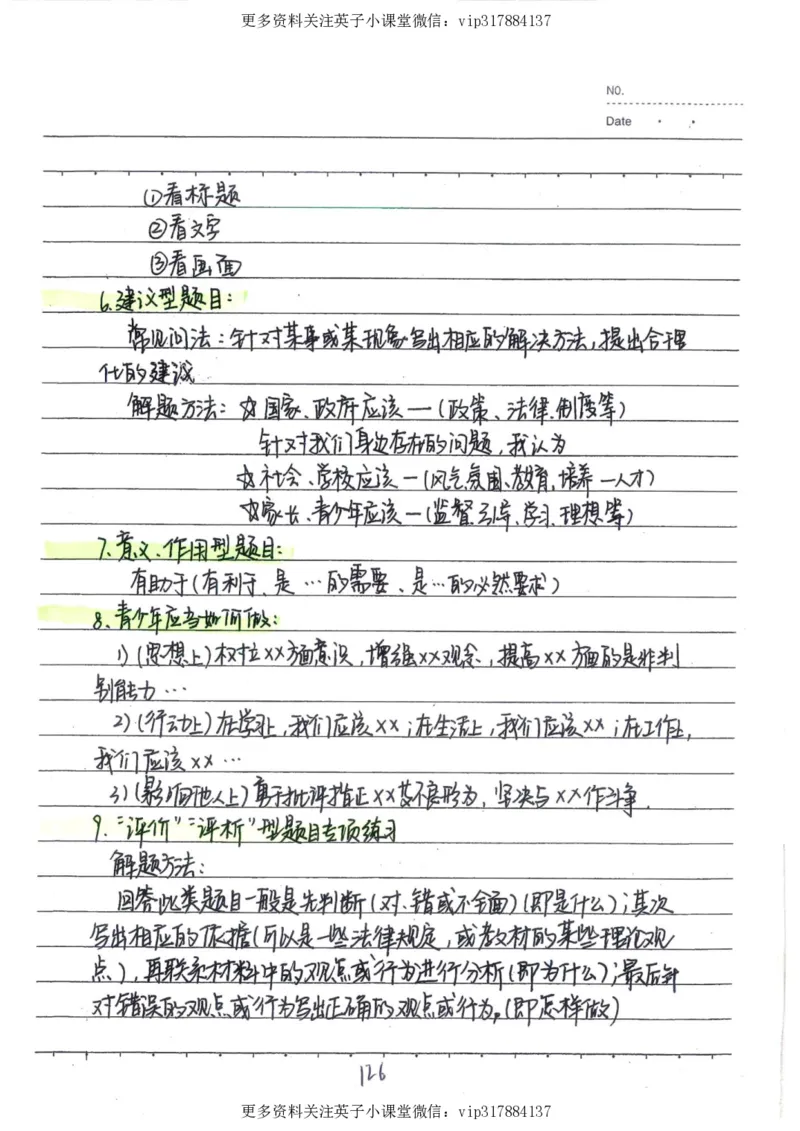 更多资料关注英子小课堂微信：vip317884137
NO.
Date
①看标题
②看文字
③看画面
6.建议型题目：
常见问法：针对某事或某现象写出相应的解决方法，提出合理
化的建议
解题方法：☆国家、政府应该—（政策、法律、制度等）
针对我们身边存在的问题，我认为
☆社会、学校应该—（风气氛围、教育、培养—人才）
☆家长、青少年应该—（监督引导、学习、理想等）
7.意义、作用型题目：
有助于（有利于、是…的需要、是…的必然要求）
8.青少年应当如何做：
1)（思想上）树立××方面意识，增强××观念，提高××方面的是非判
别能力…
2)（行动上）在学习上，我们应该××；在生活上，我们应该××；在工作上，
我们应该××…
3)（影响他人上）勇于批评指正××等不良行为，坚决与××作斗争.
9.“评价”“评析”型题目专项练习
解题方法：
回答此类题目一般是先判断（对、错或不全面）（即是什么）；其次
写出相应的依据（可以是一些法律规定，或教材的某些理论观
点），再联系材料中的观点或行为进行分析（即为什么）；最后针
对错误的观点或行为写出正确的观点或行为。（即怎样做）
126
更多资料关注英子小课堂微信：vip317884137